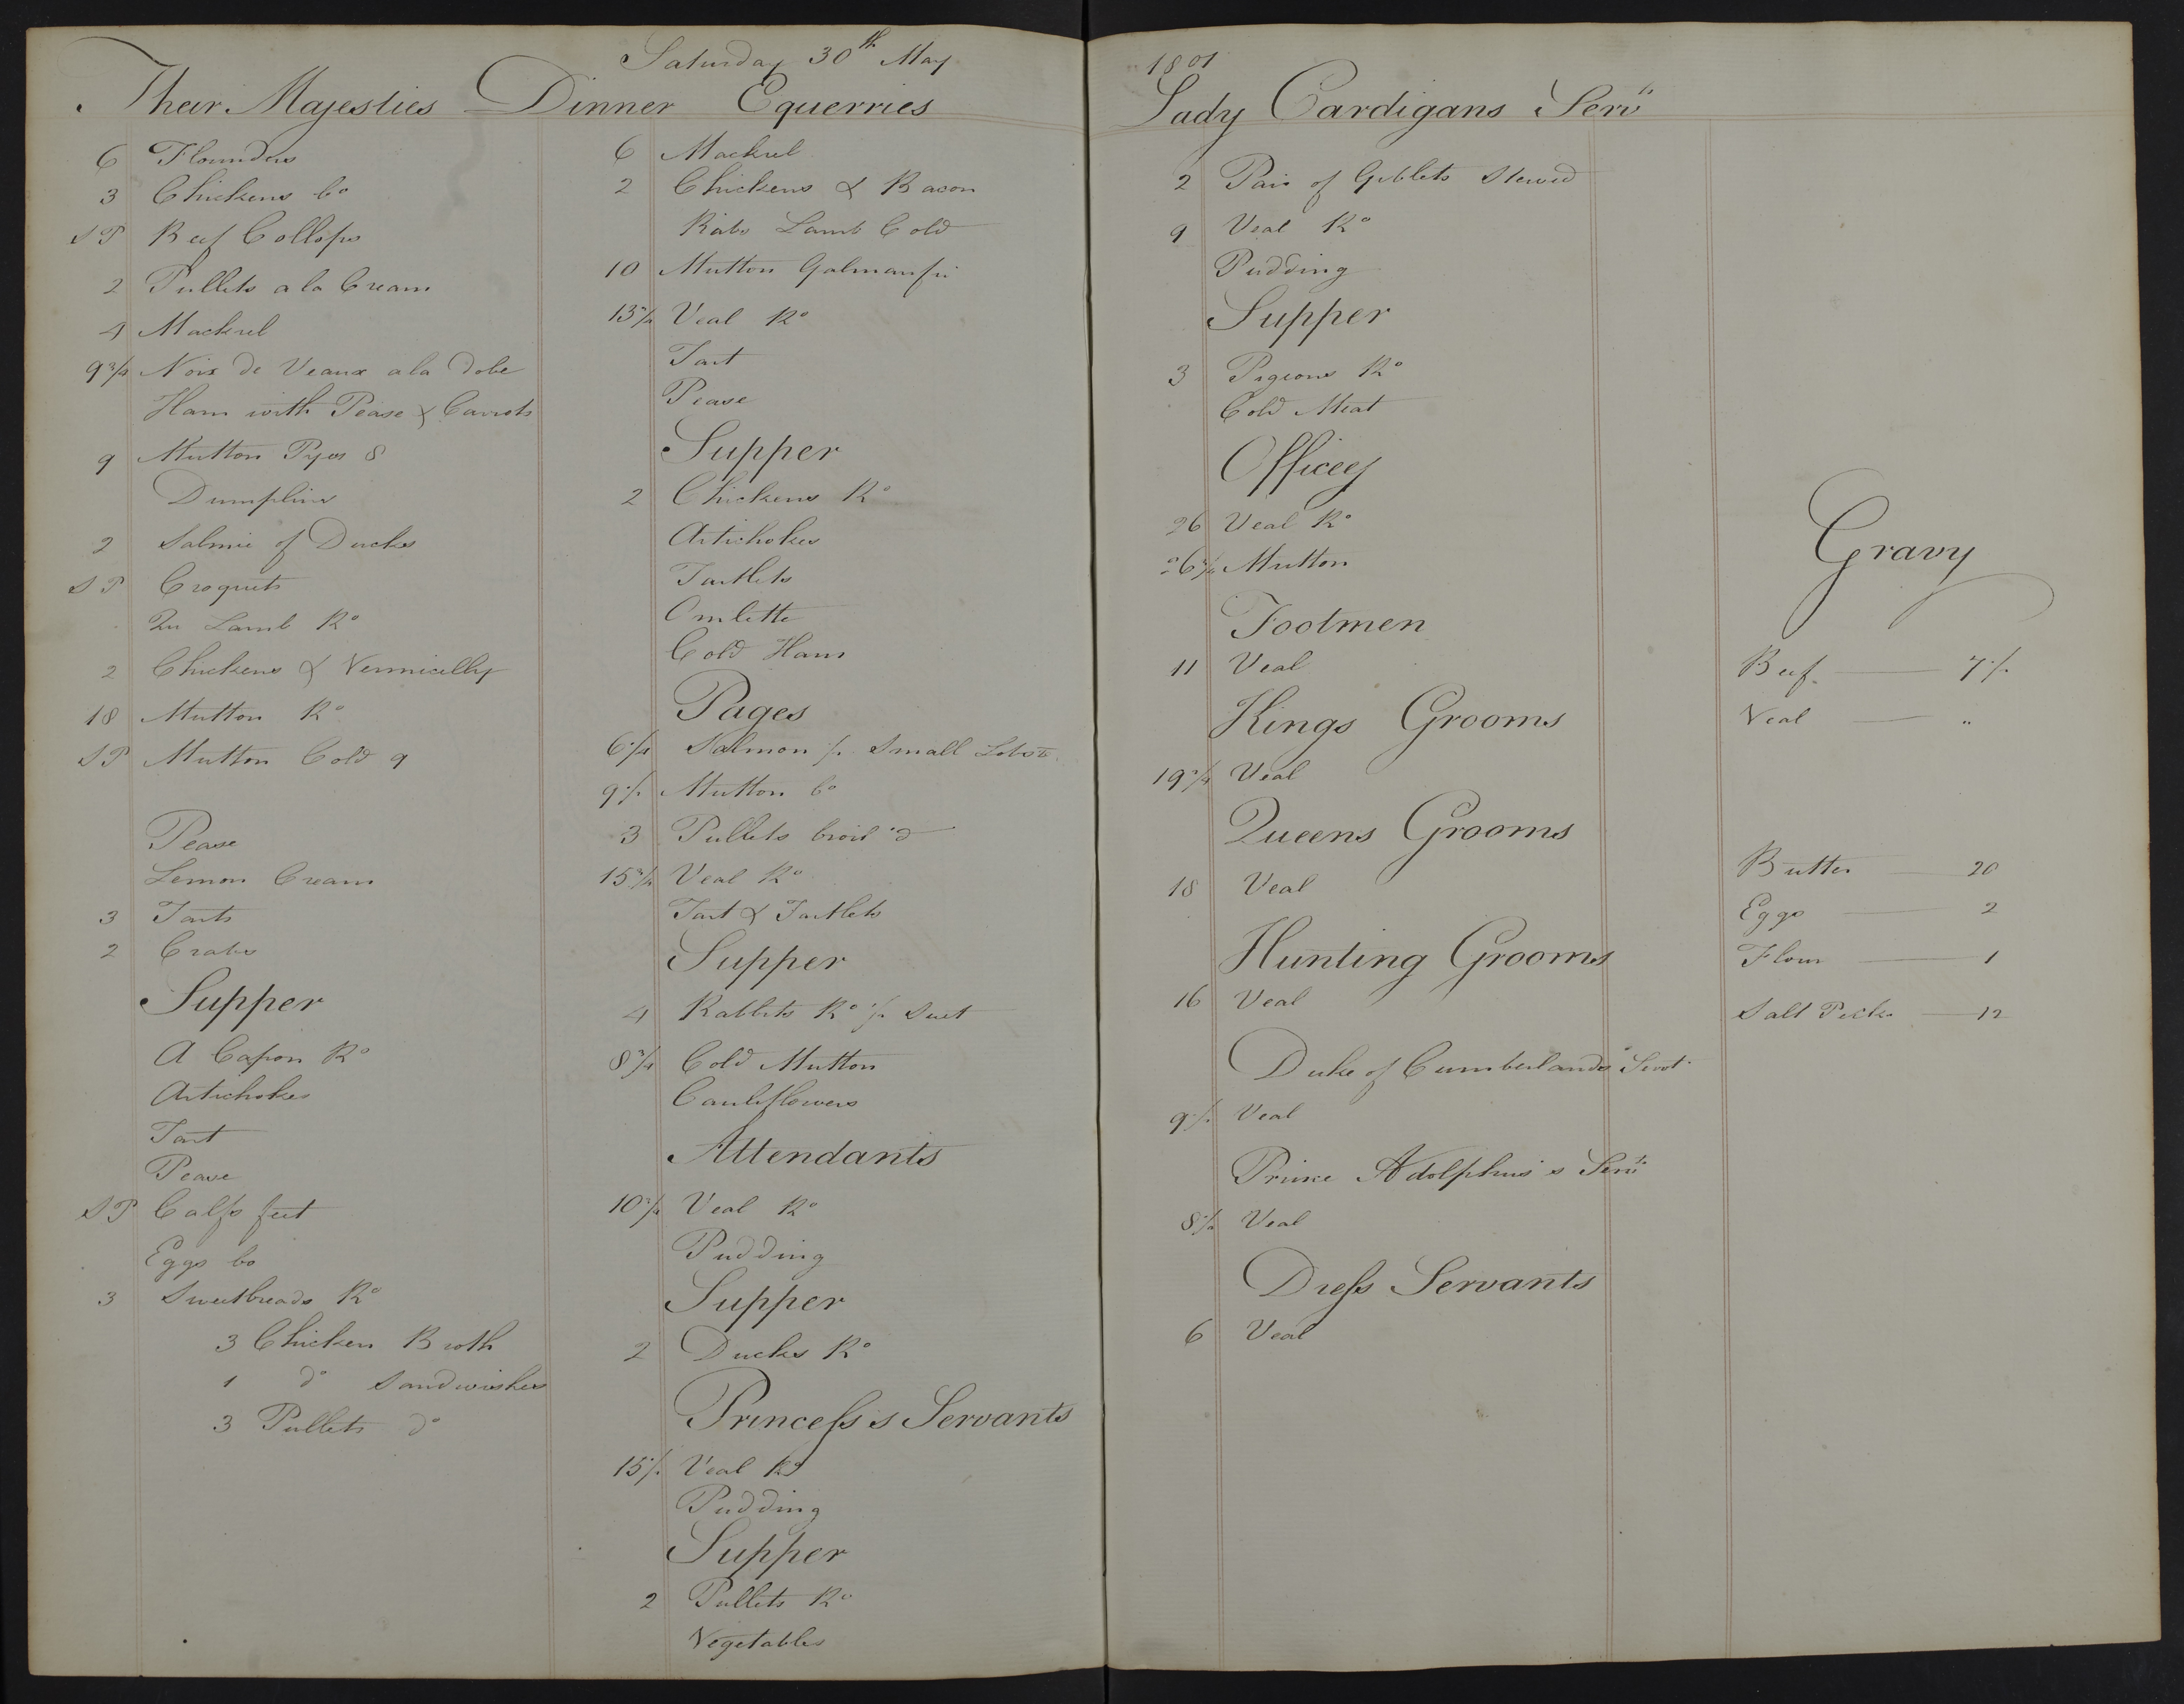 Saturday 30th May
Their Majesties Dinner
6 Flounders
3 Chickens bo
SP Beef Collops
2 Pullets a la Cream
4 Mackrel
9 3/4 Noix de Veaux a la dobe
Ham with Pease & Carrots
9 Mutton Pyes 8
Dumplins
2 Salmie of Ducks
SP Croquets
Qu Lamb Ro
2 Chickens & Vermicelly
18 Mutton Ro
SP Mutton Cold 9
Pease
Lemon Cream
3 Tarts
2 Crabs
Supper
A Capon Ro
Artichokes
Tart
Pease
SP Calfs feet
Eggs bo
3 Sweetbreads Ro
3 Chicken Broth
1 do Sandwishes
3 Pullets do
Equerries
6 Mackrel
2 Chickens & Bacon
Ribs Lamb Cold
10 Mutton
Veal Ro
Tart
Pease
Supper
2 Chickens Ro
Artichokes
Tartlets
Omlette
Cold Ham
Pages
Salmon Small
Mutton bo
3 Pullets broil'd
15 3/4 Veal Ro
Tart & Tartlets
Supper
4 Rabbits Ro Suet
8 3/4 Cold Mutton
Cauliflowers
Attendants
Veal Ro
Pudding
Supper
2 Ducks Ro
Princess's Servants
Veal Ro
Pudding
Supper
2 Pullets Ro
Vegetables
1801
Lady Cardigans Servts
2 Pair of Giblets Stewed
9 Veal Ro
Pudding
Supper
3 Pigeons Ro
Cold Meat
Officey
26 Veal Ro
Mutton
Footmen
11 Veal
Kings Grooms
Veal
Queens Grooms
18 Veal
Hunting Grooms
16 Veal
Duke of Cumberlands Servt
Veal
Prince Adolphus's Servts
Veal
Dress Servants
6 Veal
Gravy
Beef
Veal "
Butter 20
Eggs 2
Flour 1
Salt 12